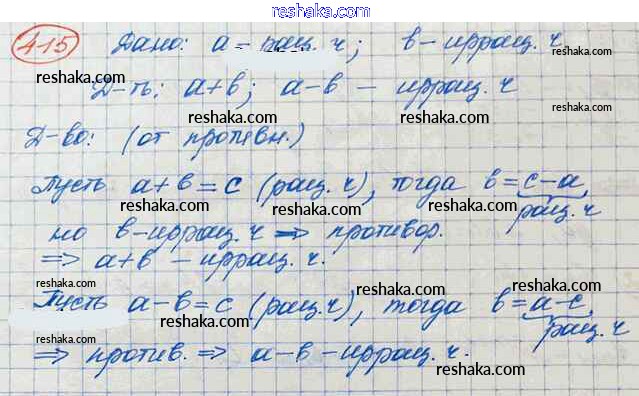 reshaka.com
415 Дано: a - рац. ч; в - иррац. ч
reshaka.com
reshaka.com
Д-ть: a+в; a-в - иррац. ч
reshaka.com
reshaka.com
Д-во: (от противн.)
reshaka.com
Пусть a+в=c (рац. ч), тогда в=c-a,
рац. ч
reshaka.com
но в-иррац. ч => противор.
reshaka.com
reshaka.com
=> a+в - иррац. ч.
reshaka.com
reshaka.com
Пусть a-в=c (рац. ч), тогда в=a-c,
рац. ч
reshaka.com
reshaka.com
=> против. => a-в-иррац. ч.
reshaka.com
reshaka.com
reshaka.com